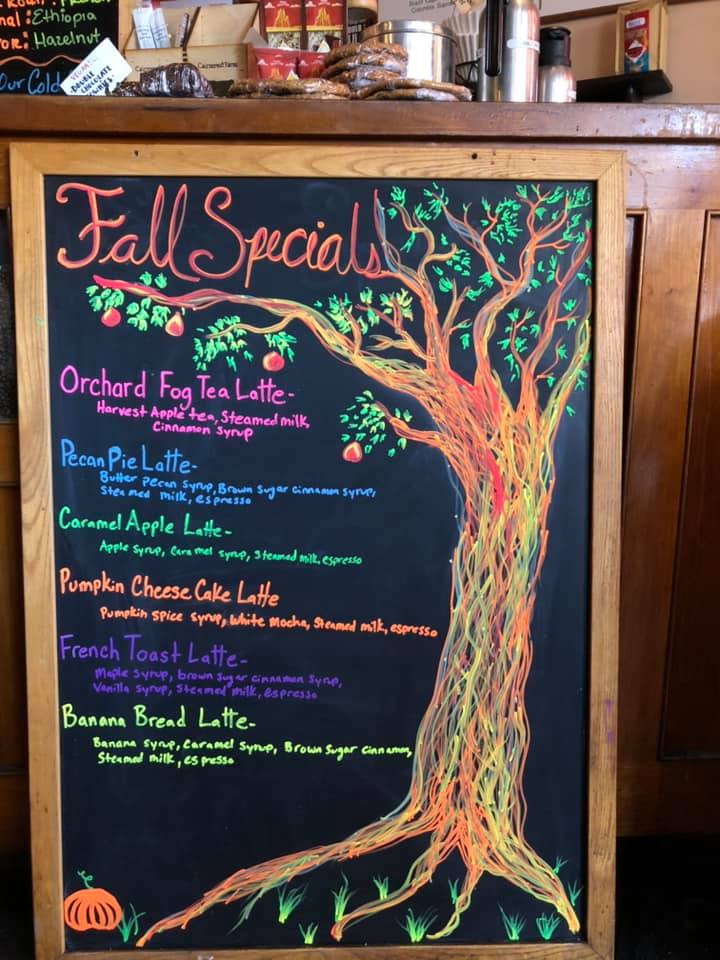 Ethiopia
Hazelnut
Our Cold
DOUBLE
CHOCOLATE
Fall Specials
Orchard Fog Tea Latte-
Harvest Apple tea, Steamed milk,
Cinnamon Syrup
Pecan Pie Latte-
Butter pecan syrup, Brown Sugar cinnamon syrup,
Steamed milk, espresso
Caramel Apple Latte-
Apple syrup, Caramel syrup, Steamed milk, espresso
Pumpkin Cheese Cake Latte
Pumpkin spice syrup, White Mocha, Steamed milk, espresso
French Toast Latte-
Maple syrup, brown sugar cinnamon syrup,
Vanilla syrup, Steamed milk, espresso
Banana Bread Latte-
Banana syrup, Caramel syrup, Brown Sugar cinnamon,
Steamed milk, espresso